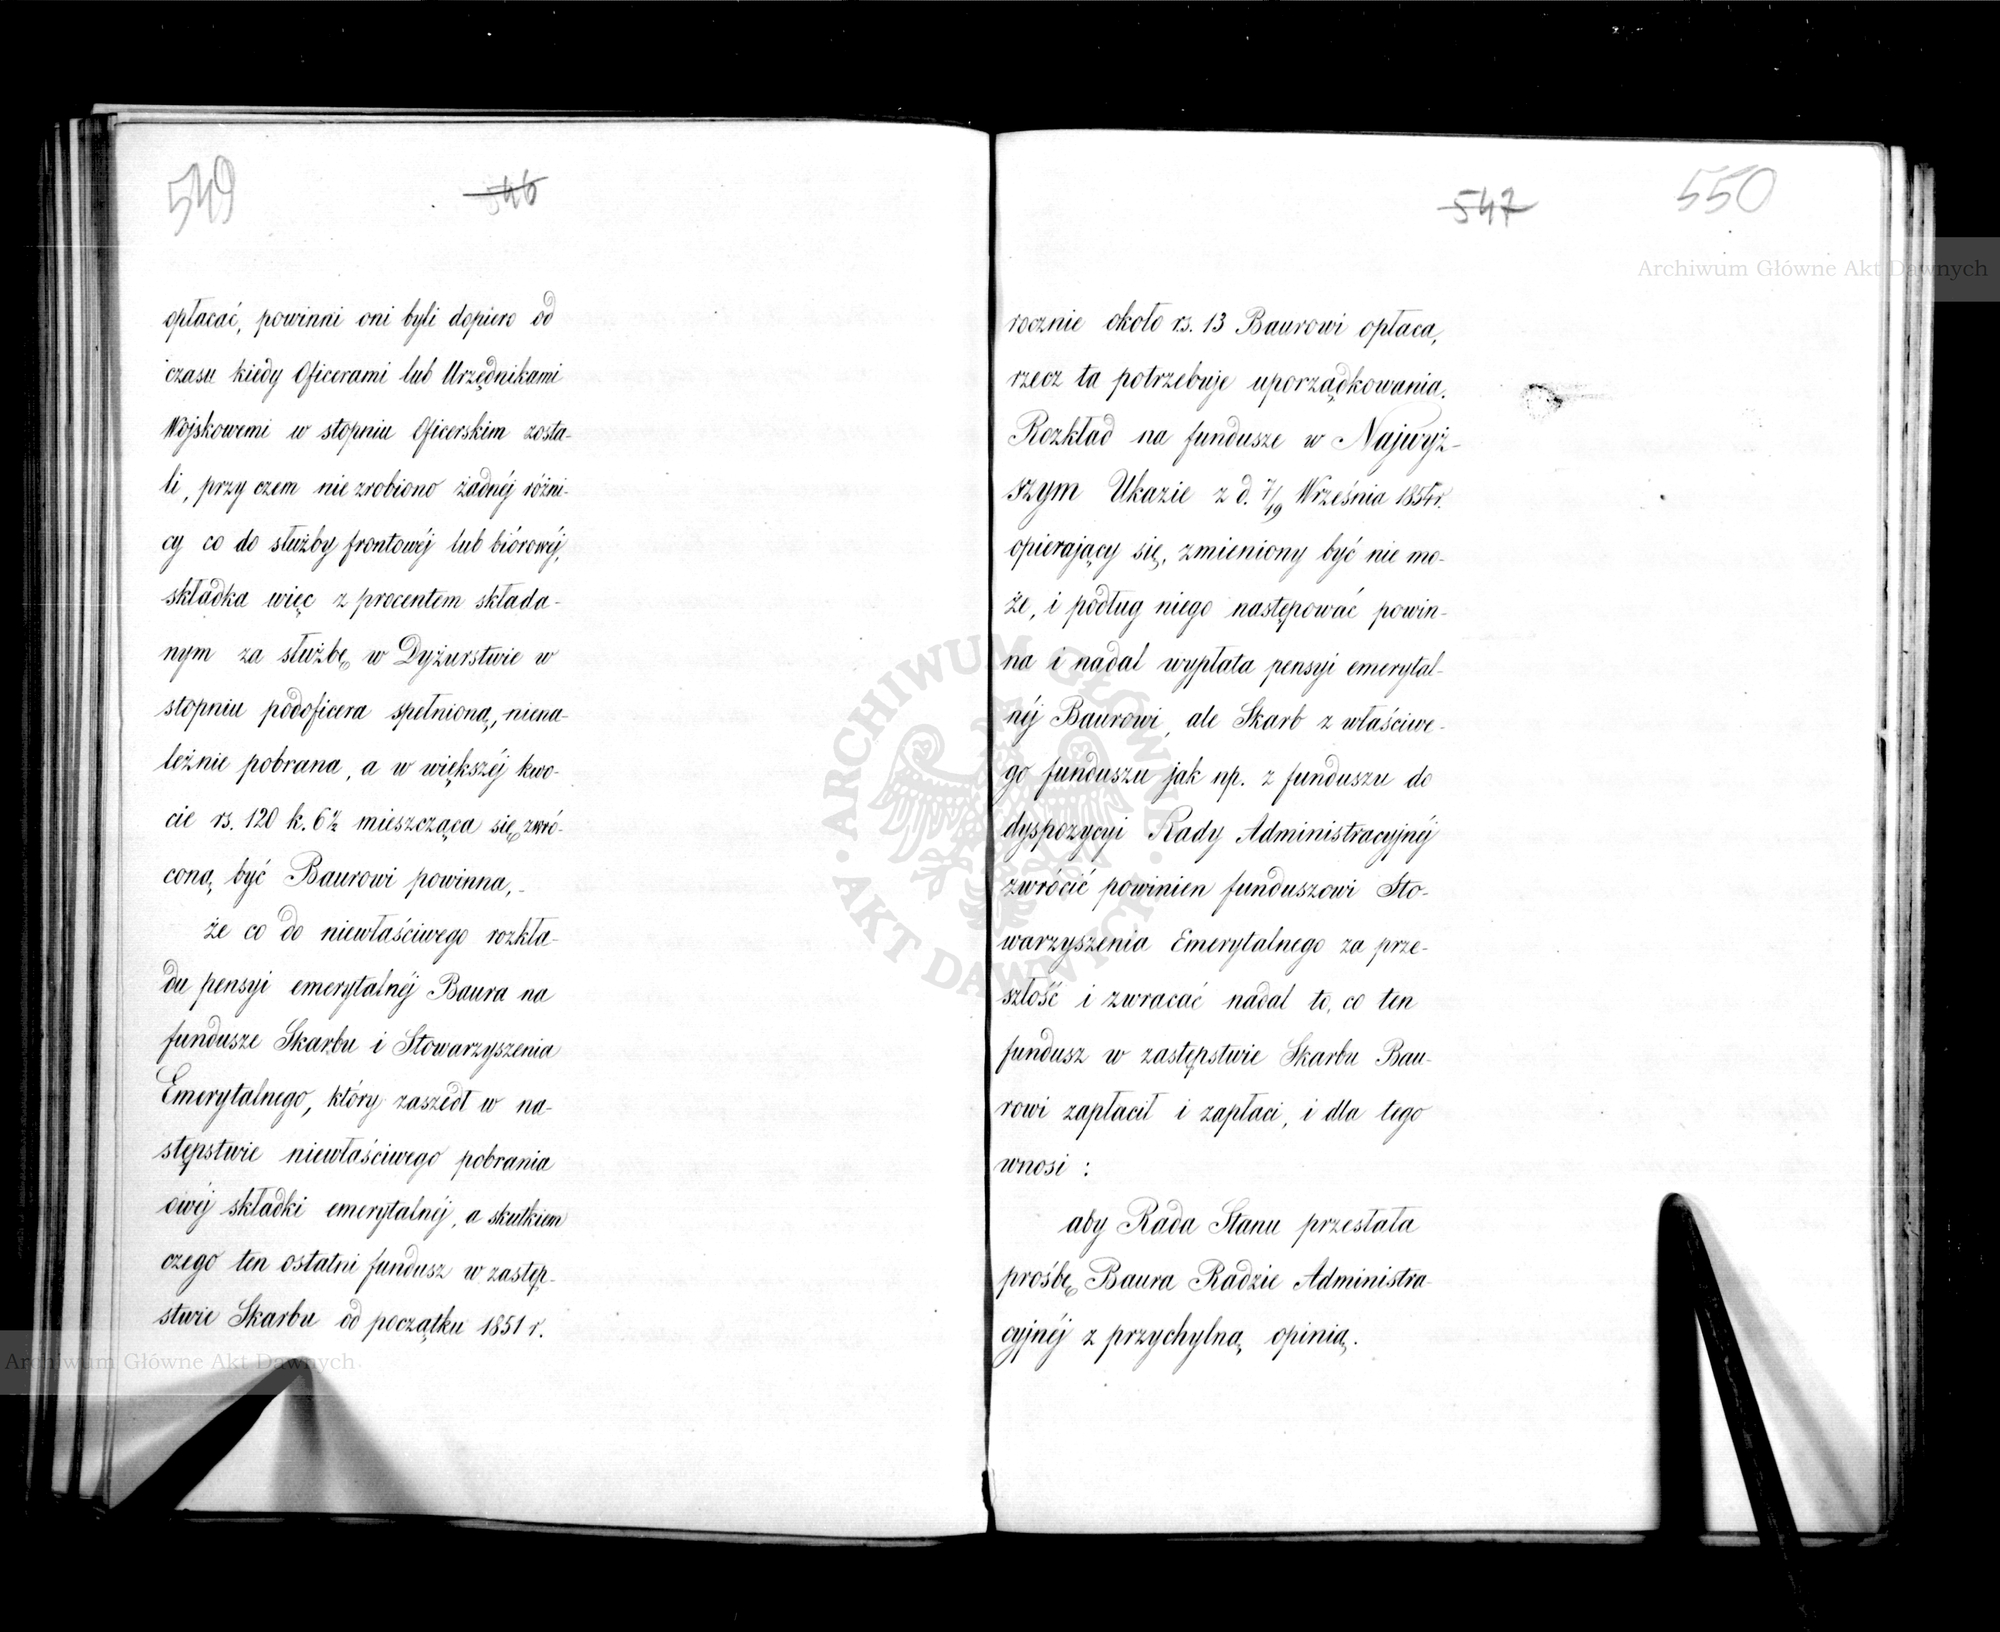 549
546
opłacać, powinni oni byli dopiero od
czasu kiedy Oficerami lub Urzędnikami
Wojskowemi w stopniu Oficerskim zosta-
li, przy czem nie zrobiono żadnéj różni-
cy co do służby frontowéj lub biórowéj,
składka więc z procentem składa-
nym za służbę w Dyżurstwie w
stopniu podoficera spełnioną, niena-
leżnie pobrana, a w większéj kwo-
cie rs. 120 k. 6½ mieszcząca się, zwró-
coną być Baurowi powinna, -
że co do niewłaściwego rozkła-
du pensyi emerytalnéj Baura na
fundusze Skarbu i Stowarzyszenia
Emerytalnego, który zaszedł w na-
stępstwie niewłaściwego pobrania
owéj składki emerytalnéj, a skutkiem
czego ten ostatni fundusz w zastęp-
stwie Skarbu od początku 1851 r.
547
550
rocznie około rs. 13 Baurowi opłaca,
rzecz ta potrzebuje uporządkowania.
Rozkład na fundusze w Najwyż-
szym Ukazie z d. 7/19 Września 1854 r.
opierający się, zmieniony być nie mo-
że, i podług niego następować powin-
na i nadal wypłata pensyi emerytal-
néj Baurowi, ale Skarb z właściwe-
go funduszu jak np. z funduszu do
dyspozycyi Rady Administracyjnéj
zwrócić powinien funduszowi Sto-
warzyszenia Emerytalnego za prze-
szłość i zwracać nadal to, co ten
fundusz w zastępstwie Skarbu Bau-
rowi zapłacił i zapłaci, i dla tego
wnosi :
aby Rada Stanu przesłała
prośbę Baura Radzie Administra-
cyjnéj z przychylną opinią.
Archiwum Główne Akt Dawnych
ARCHIWUM GŁÓWNE · AKT DAWNYCH ·
Archiwum Główne Akt Dawnych